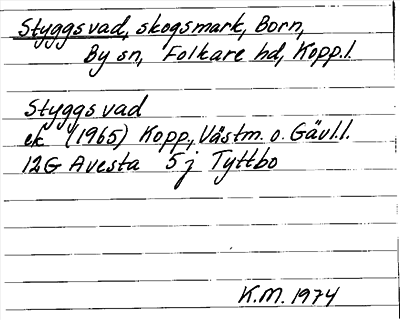 Styggsvad, skogsmark, Born,
By sn, Folkare hd, Kopp.l.
Styggsvad
ek (1965) Kopp., Västm. o. Gävl.l.
12G Avesta 5j Tyttbo
K.M. 1974